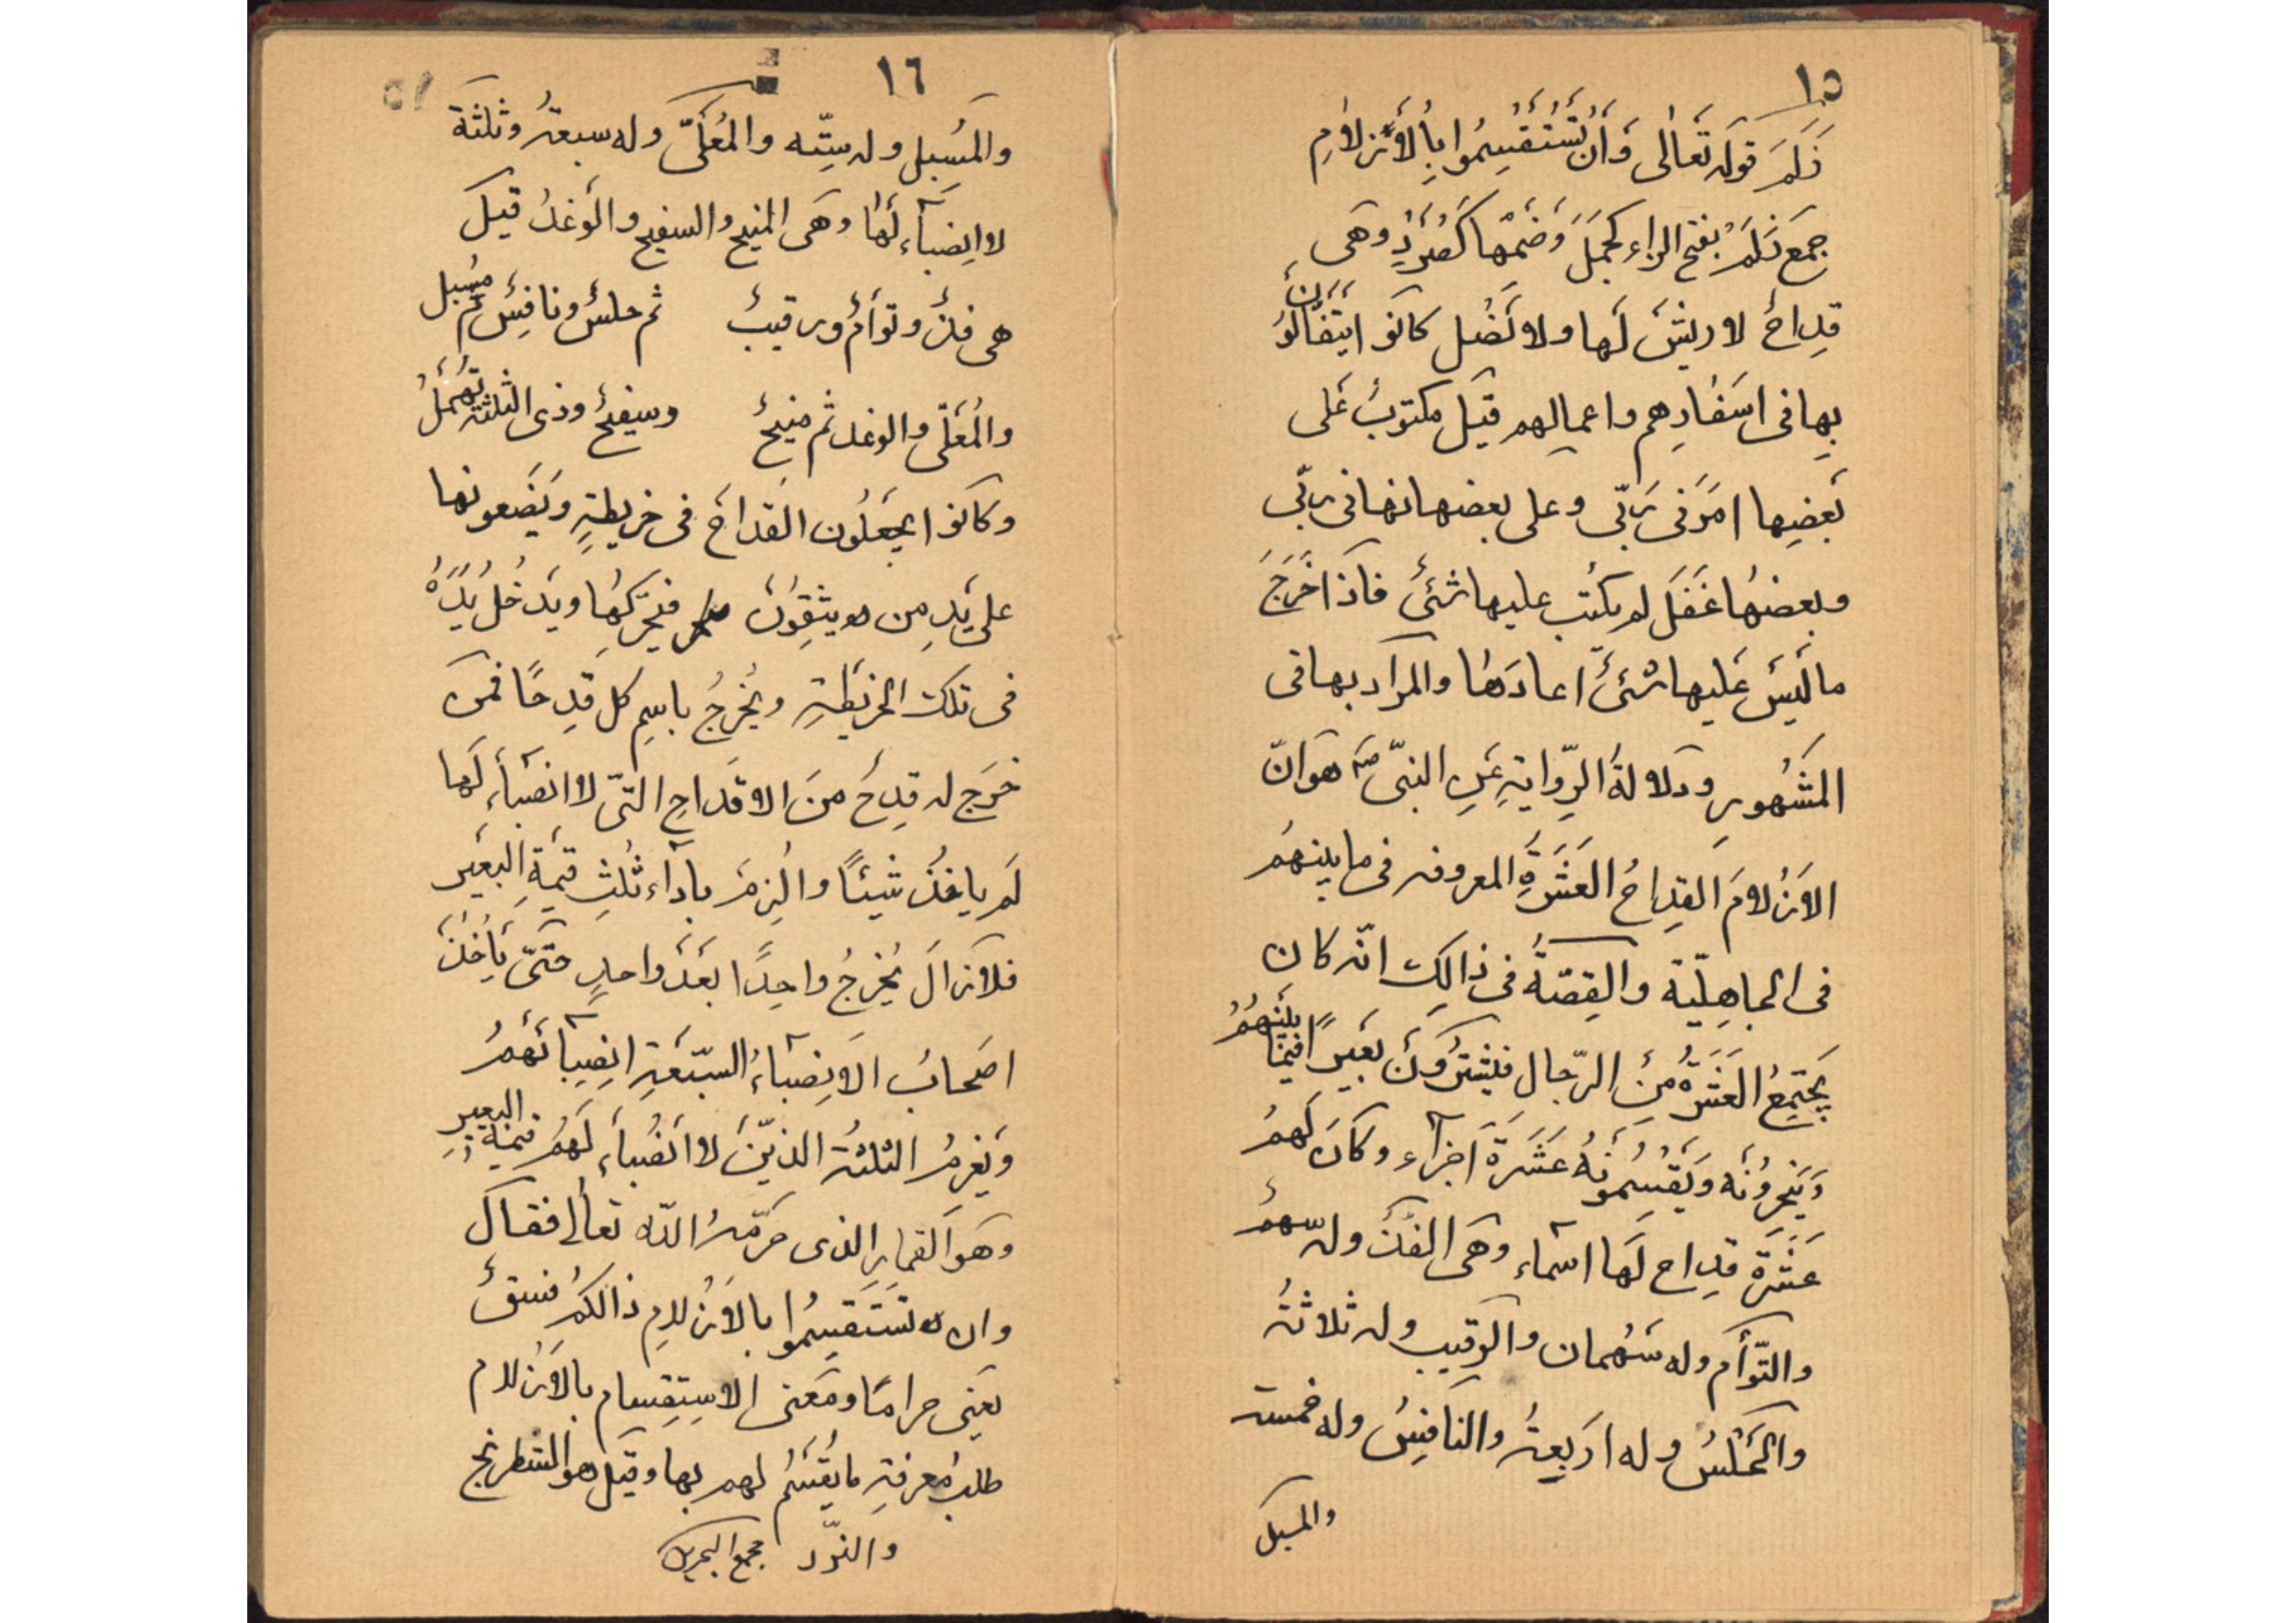 ١٥
زَلَمَ قوله تَعَالٰى وَأَنْ تَسْتَقْسِمُوا بِالْأَزْلَامِ
جمَع زَلَمَ بفتح الزاء كجَمَلَ وَضَمّها كَصُرَدٍ وهَى
قِدِاحٌ لا ريشَ لَها ولا نَصْل كانوا يَتَفَأَّلُونَ
بِها فى اسَفٰارِهم واعمالِهم قيَل مكتوبٌ عَلى
بَعضِها امَرَنى رَبّى وعلى بعضها نهانى ربّى
وبعضهُا غَفَلَ لم يكتب عليها شئىٌ فاذا خَرَجَ
ما لَيسَ عَليها شئىٌ اعادَهٰا والمرَاد بها فى
المَشهُورِ ودَلالةُ الرِّوايةِ عَنِ النبىّ صَ هَوَ انّ
الاَزلامَ القِداحُ العَشَرَةِ المعروفه فى ما بينهُم
فى الجاهِليّة والقِصّةُ فى ذالِكَ انّه كان
يَجتَمِعُ العَشَرَةُ مِنَ الرّجال فيشتَرُونَ بعَيرًا فيمٰا بَينَهُمُ
وَيَنحَرُونَه وَيَقْسِمُونهُ عَشَرَةَ اَجزآء وكانَ لَهمُ
عَشَرَة قِداح لَها اسمآء وهَى الفذّ وله سهمٌ
والتّوأَم وله سَهُمان والرَقيب وله ثلاثةُ
والحَلَسُ وله ارَبعةُ والنافِسُ وله خمسة
والمسبل
١٦
والمُسبِل وله سِتّه والمُعَلّىَ وله سبعةُ وثلثة
لا انصِبآء لَهٰا وهَى المنيح والسفيح والوَغدُ قيَل
هى فذٌ وتوأَمٌ ورقيبٌ ثم حلسٌ ونافِسٌ ثم مُسبل
والمُعَلّى والوغد ثم منيحٌ وسفيحٌ وذى الثلثة تُهمَلُ
وكانوا يجعَلُون القداحَ فى خريطةٍ ويَضَعونها
على يَدِ مِن يثقِوُنَ فيحَرّكهُا ويَدخلُ يَدَهُ
فى تلك الخريَطةِ ويُخرجُ باسِم كل قِدحًا فمن
خرَج له قِدحَ منَ الاقَداحِ التىّ لا انصَبآءِ لَها
لَم ياخذُ شيئًا والُزِمَ بادآء ثُلثِ قيَمةِ البَعيَر
فلا يزالَ يُخرجُ واحِدًا بَعَدَ واحدٍ حَتّى يأخُذَ
اصَحابُ الاَنصِبآءِ السّبعَةِ انصِبآئَهمُ
وَيغرمُ الثلثة الذيّنَ لا انَصُبآءَ لَهمُ قيمة البعير
وهَوَ القمارِ الذى حرّمهُ اللّه تعالٰى فقالَ
وان تسَتَقسِمُوا بالاَزلامِ ذالكم فسقٌ
يَعنى حرامًا ومَعنى الاسِتِقسام بالاَزلام
طلب مَعرفةِ ما يُقسَمُ لهم بها وقيَل هو الشطرنج
والنرّد مجمع البحرين